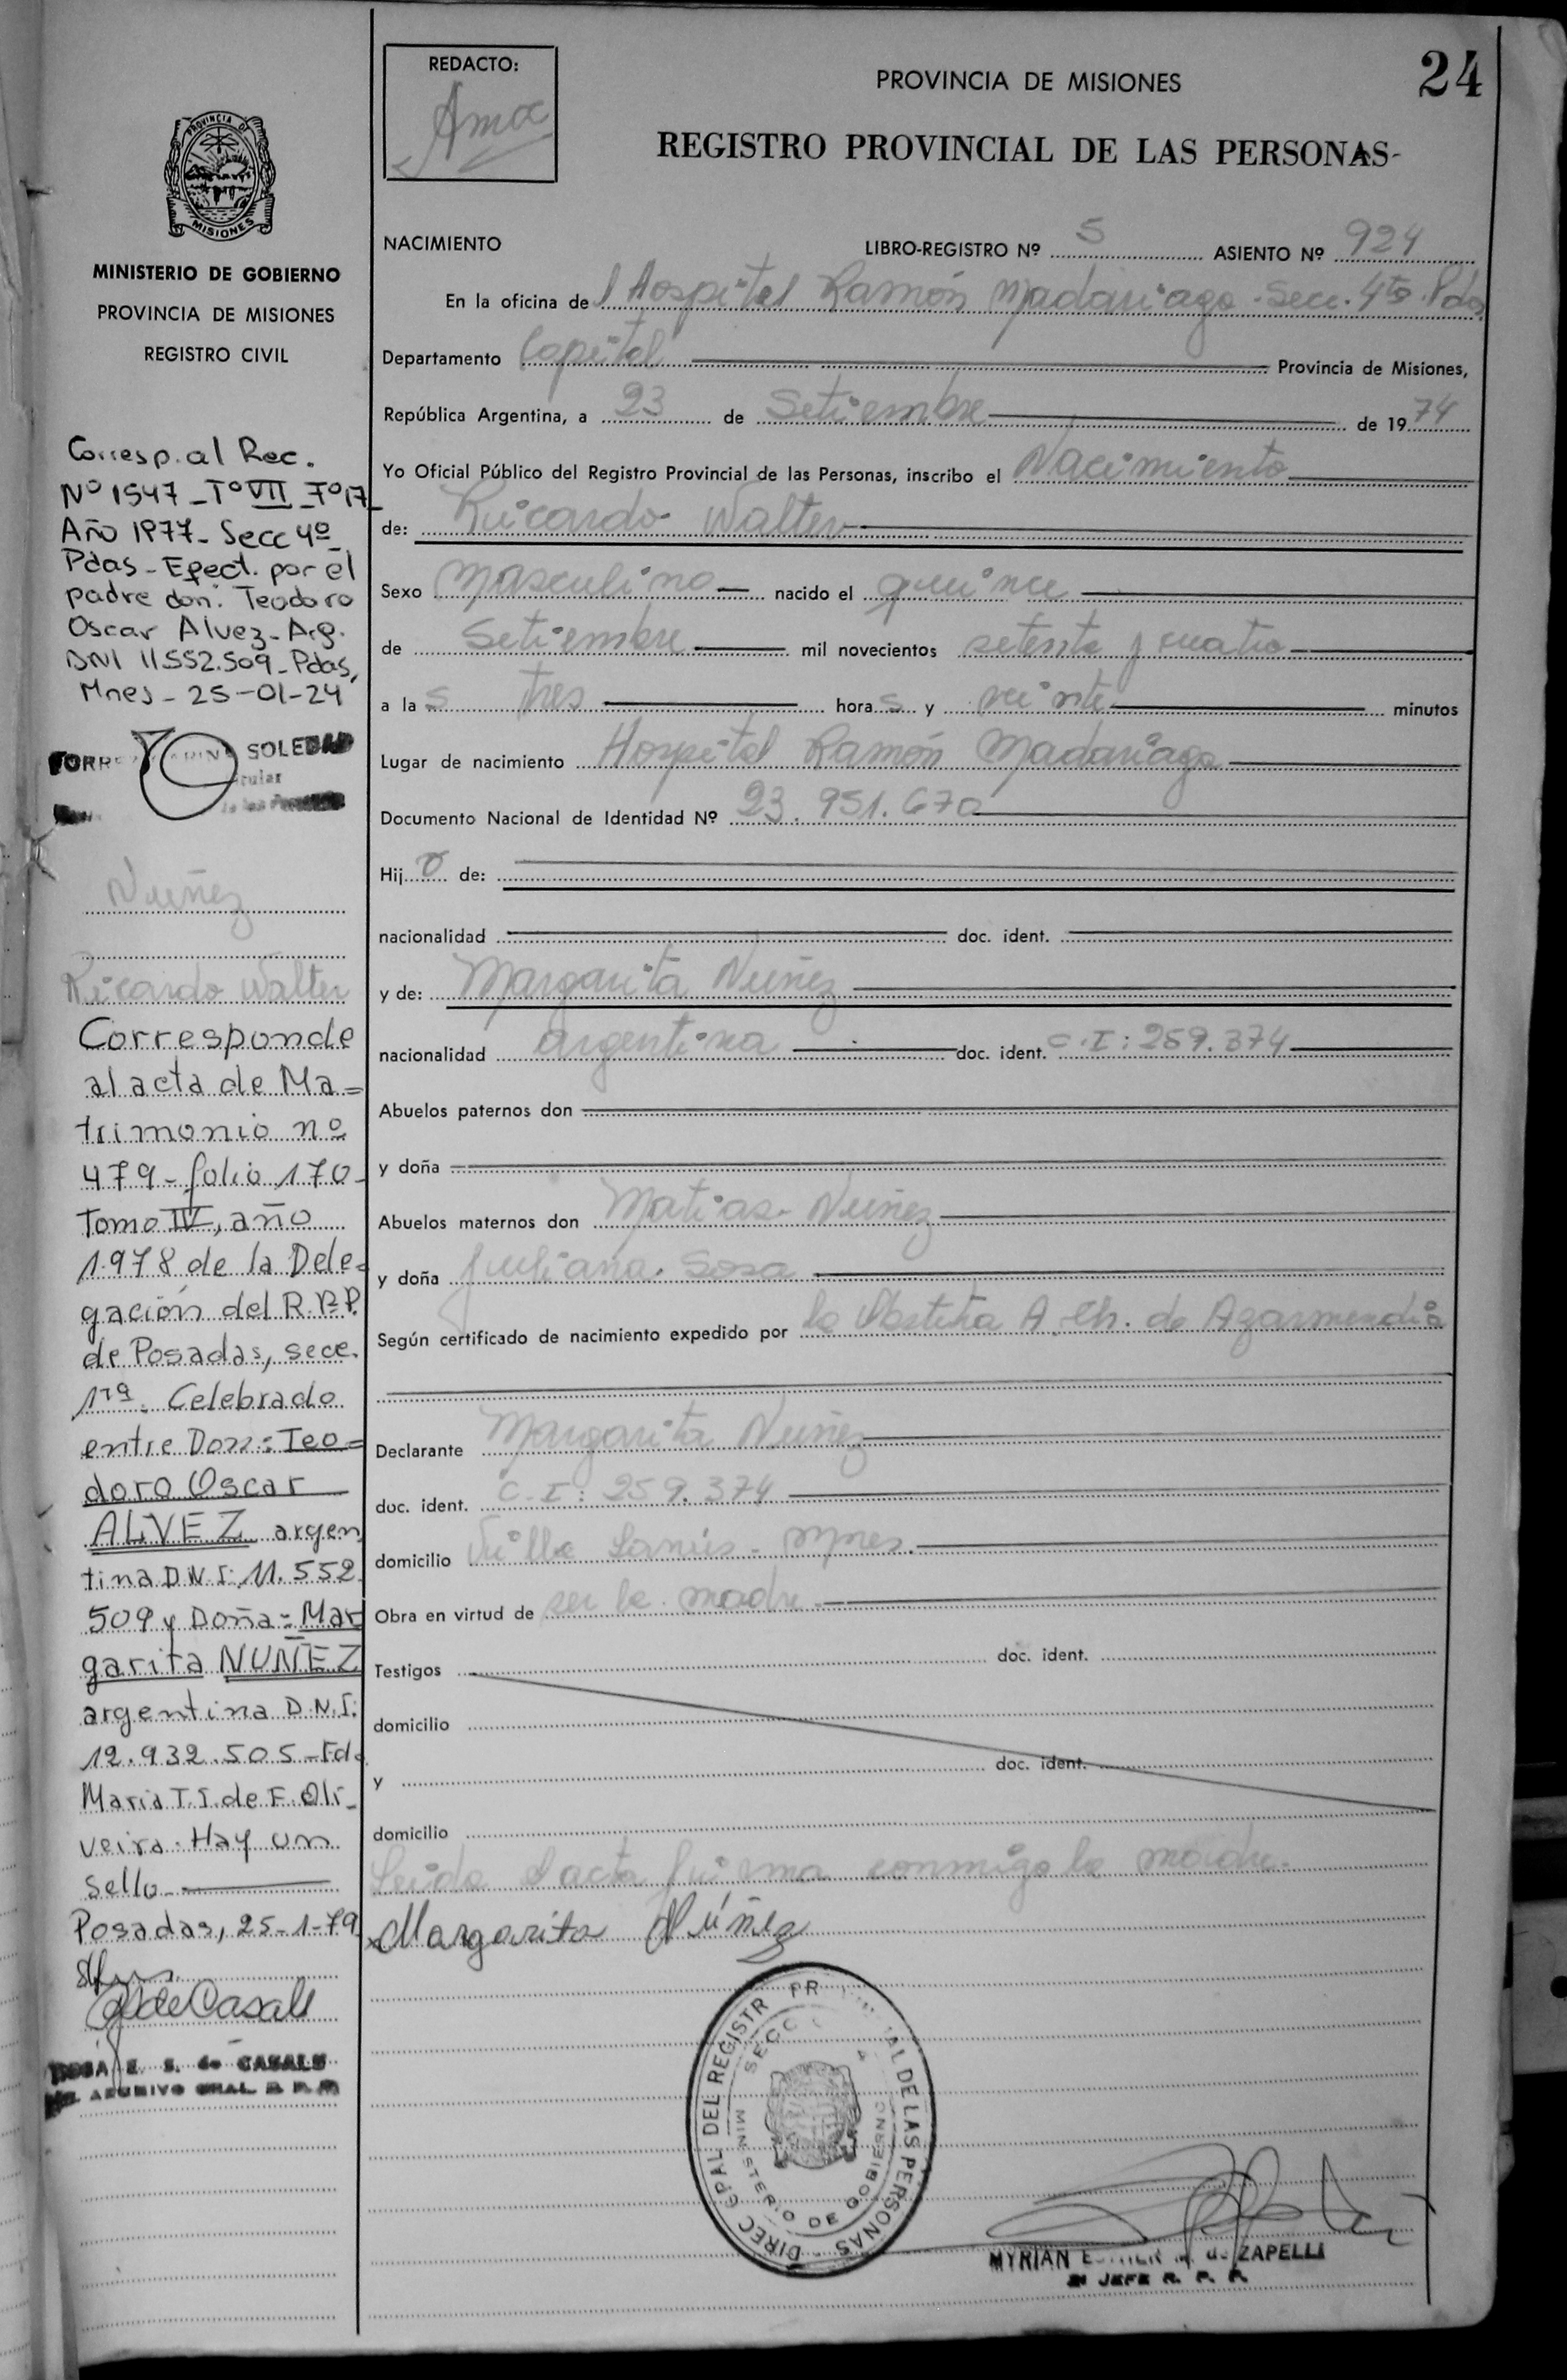 24
REDACTO:
PROVINCIA DE MISIONES
REGISTRO PROVINCIAL DE LAS PERSONAS-
PROVINCIA DE
MISIONES
MINISTERIO DE GOBIERNO
PROVINCIA DE MISIONES
REGISTRO CIVIL
Corresp. al Rec.
Nº 1547 - Tº VII - Fº 17
Año 1977 - Secc 4º
Pdas - Efect. por el
padre don: Teodoro
Oscar Alvez - Arg.
DNI 11.552.509 - Pdas,
Mnes - 25-01-24
SOLEDAD
Nuñez
Ricardo Walter
Corresponde
al acta de Ma=
trimonio nº
479 - folio 170 -
Tomo IV, año
1.978 de la Dele=
gación del R.P.P.
de Posadas, secc.
1ra. Celebrado
entre Don: Teo=
doro Oscar
ALVEZ argen
tina D.N.I: 11.552.
509 y Doña: Mar
garita NUÑEZ
argentina D.N.I:
12.932.505 - Fd.
Maria T.I. de F. Oli-
veira. Hay un
sello.
Posadas, 25-1-79
de Casals
E. S. de CASALS
ARCHIVO GRAL. R. P. P.
NACIMIENTO LIBRO-REGISTRO Nº 5 ASIENTO Nº 924
En la oficina de l Hospital Ramón Madariaga - Secc. 4ta Pdas.
Departamento Capital Provincia de Misiones,
República Argentina, a 23 de Setiembre de 19 74
Yo Oficial Público del Registro Provincial de las Personas, inscribo el Nacimiento
de: Ricardo Walter
Sexo masculino nacido el quince
de Setiembre mil novecientos setenta y cuatro
a la s tres hora s y veinte minutos
Lugar de nacimiento Hospital Ramón Madariaga
Documento Nacional de Identidad Nº 23.951.670
Hij o de:
nacionalidad doc. ident.
y de: Margarita Nuñez
nacionalidad argentina doc. ident. C.I: 259.374
Abuelos paternos don
y doña
Abuelos maternos don Matias Nuñez
y doña Juliana Sosa
Según certificado de nacimiento expedido por la Partera A. Ch. de Azarmendia
Declarante Margarita Nuñez
doc. ident. C.I: 259.374
domicilio Villa Lanús - Mnes.
Obra en virtud de ser la madre
Testigos doc. ident.
domicilio
y doc. ident.
domicilio
Leida el acta firma conmigo la madre.
Margarita Núñez
DIREC GPAL DEL REGISTR PR AL DE LAS PERSONAS
SECC 4
MINISTERIO DE GOBIERNO
MYRIAN ZAPELLI
JEFE R. P. P.